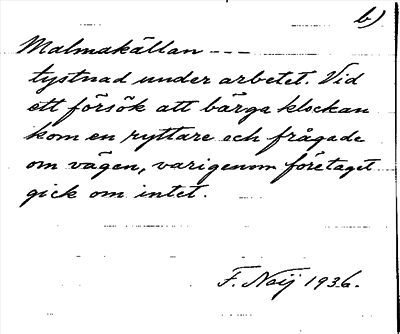 b)
Malmakällan ---
tystnad under arbetet. Vid
ett försök att bärga klockan
kom en ryttare och frågade
om vägen, varigenom företaget
gick om intet.
F. Naij 1936.